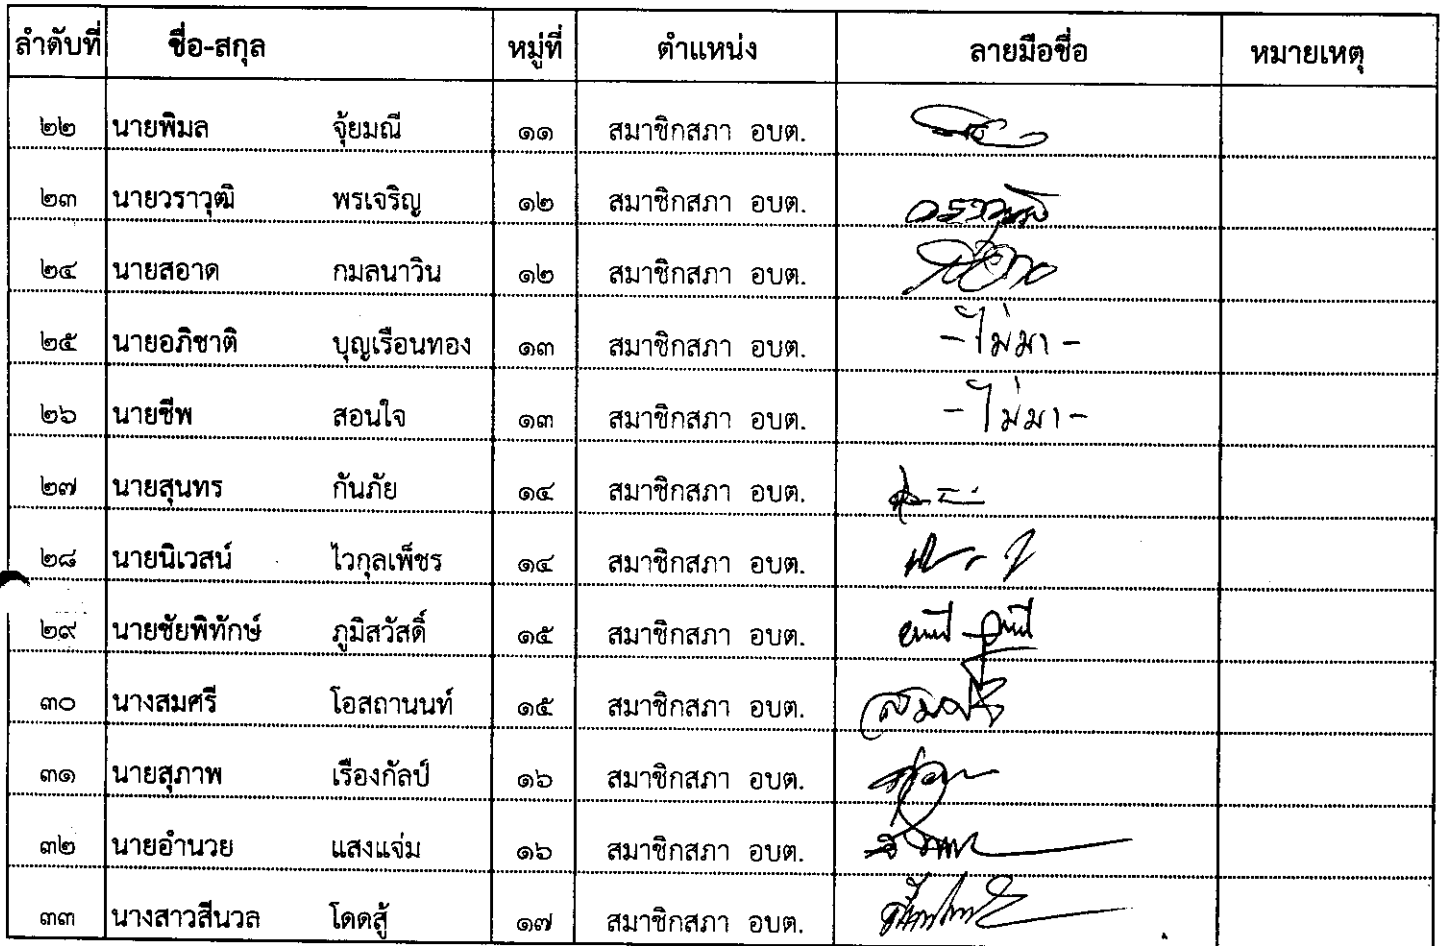 ลำดับที่ ชื่อ-สกุล หมู่ที่ ตำแหน่ง ลายมือชื่อ หมายเหตุ
๒๒ นายพิมล จุ้ยมณี ๑๑ สมาชิกสภา อบต.
๒๓ นายวราวุฒิ พรเจริญ ๑๒ สมาชิกสภา อบต. วราวุฒิ
๒๔ นายสอาด กมลนาวิน ๑๒ สมาชิกสภา อบต.
๒๕ นายอภิชาติ บุญเรือนทอง ๑๓ สมาชิกสภา อบต. -ไม่มา-
๒๖ นายชีพ สอนใจ ๑๓ สมาชิกสภา อบต. -ไม่มา-
๒๗ นายสุนทร กันภัย ๑๔ สมาชิกสภา อบต.
๒๘ นายนิเวสน์ ไวกุลเพ็ชร ๑๔ สมาชิกสภา อบต.
๒๙ นายชัยพิทักษ์ ภูมิสวัสดิ์ ๑๕ สมาชิกสภา อบต.
๓๐ นางสมศรี โอสถานนท์ ๑๕ สมาชิกสภา อบต. สมศรี
๓๑ นายสุภาพ เรืองกัลป์ ๑๖ สมาชิกสภา อบต.
๓๒ นายอำนวย แสงแจ่ม ๑๖ สมาชิกสภา อบต.
๓๓ นางสาวสีนวล โดดสู้ ๑๗ สมาชิกสภา อบต.